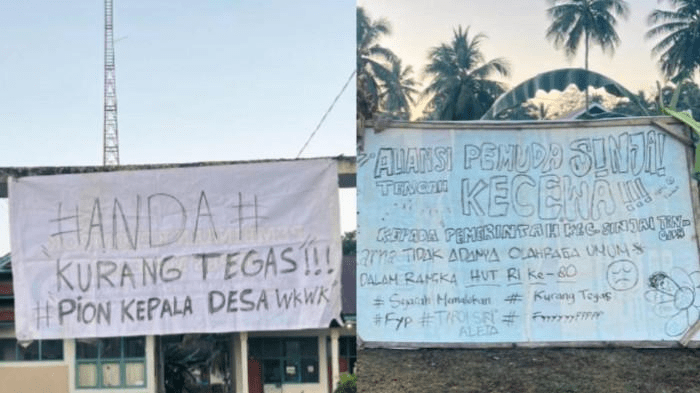 #ANDA#
"KURANG TEGAS"!!!
#PION KEPALA DESA WKWK
ALIANSI PEMUDA SINJAI!
TENGAH KECEWA!!!
KEPADA PEMERINTAH KEC. SINJAI TENGAH
TIDAK ADANYA OLAHRAGA UMUM
DALAM RANGKA HUT RI KE-80
# Sejarah Memalukan # Kurang Tegas
# Fyp #